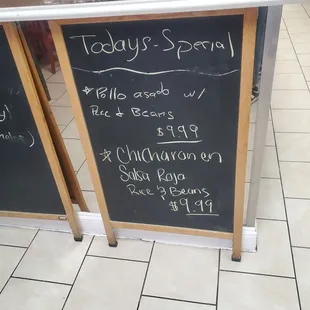 Todays - Special
* Pollo asado w/
Rice & Beans
$9.99
* Chicharon en
Salsa Roja
Rice & Beans
$9.99